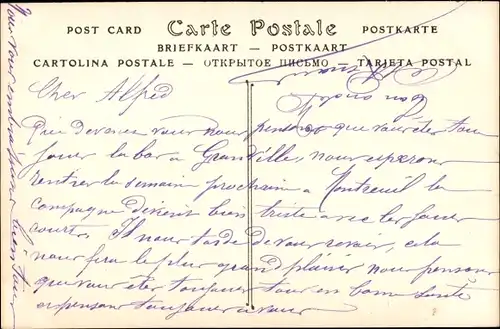 POST CARD Carte Postale POSTKARTE
BRIEFKAART — POSTKAART
CARTOLINA POSTALE — ОТКРЫТОЕ ПИСЬМО — TARJETA POSTAL
Cher Alfred
Que devenez vous nous pensons que vous êter tou
jour la bas a Granville, nous esperon
rentrer la semaine prochain a Montreuil la
compagne devient bien triste avec les jour
court. Il nous tarde de vous revoir, cela
nous fera le plus grand plaisir nous penson
que vous êter toujour tous en bonne santé
et penson toujour a vous